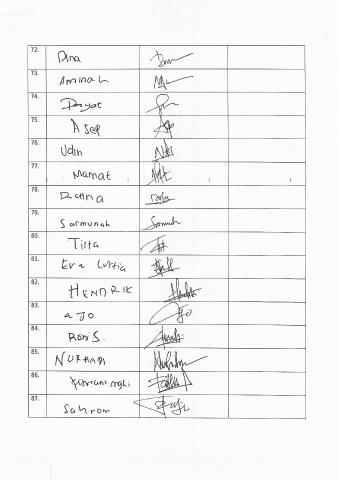 72. Dina
73. Aminah
74. Dayat
75. Asep
76. Udin
77. Mamat
78. Ratna
79. Sarmunah
80. Titta
81. Eva Lutfia
82. HENDRIK
83. AJO
84. RONI S.
85. NURHADI
86.
87. Sahrom